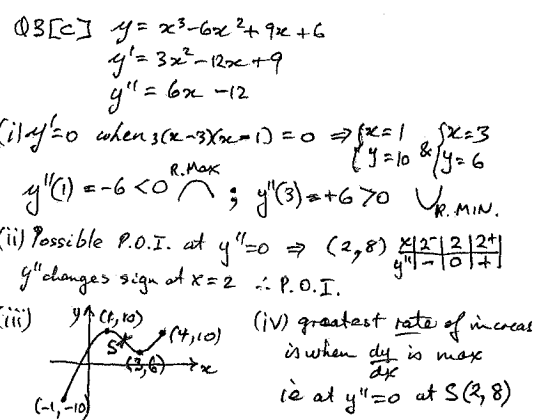 Q3[c] y = x³-6x²+9x+6
y' = 3x²-12x+9
y" = 6x-12
(i) y'=0 when 3(x-3)(x-1) = 0 ⇒ {x=1 {y=10 & {x=3 {y=6
y"(1) = -6 < 0 R.Max ; y"(3) = +6 > 0 R.MIN.
(ii) Possible P.O.I. at y"=0 ⇒ (2,8) x | 2⁻ | 2 | 2+
y" | - | 0 | +
y" changes sign at x = 2 ∴ P.O.I.
(iii) y (1,10) (4,10)
S x
(3,6)
(-1,-10)
(iv) greatest rate of increas
is when dy/dx is max
ie at y"=0 at S(2,8)